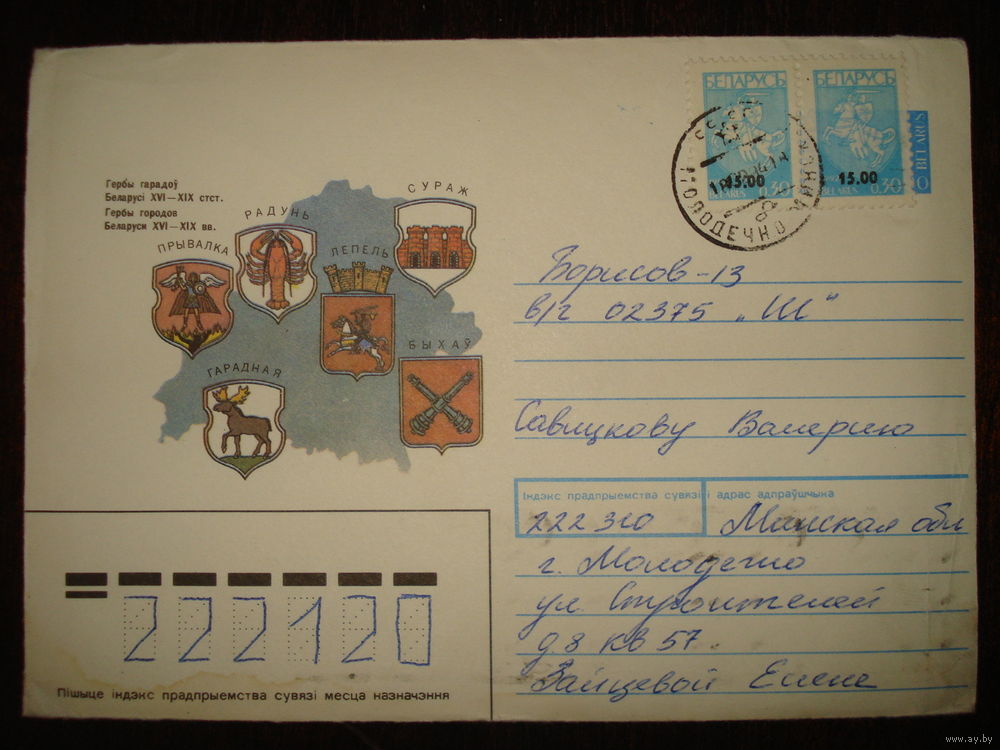 Гербы гарадоў
Беларусі XVI—XIX стст.
Гербы городов
Беларуси XVI—XIX вв.
ПРЫВАЛКА
РАДУНЬ
ЛЕПЕЛЬ
СУРАЖ
ГАРАДНАЯ
БЫХАЎ
БЕЛАРУСЬ
15.00
0.30
BELARUS
БЕЛАРУСЬ
15.00
0.30
BELARUS
BELARUS
МОЛОДЕЧНО
Борисов-13
в/ч 02375 „Ш"
Савицкову Валерию
Індэкс прадпрыемства сувязі і адрас адпраўшчыка
222310 Минская обл
г. Молодечно
ул Строителей
д 8 кв 57
Зайцевой Елене
222120
Пішыце індэкс прадпрыемства сувязі месца назначэння
www.ay.by